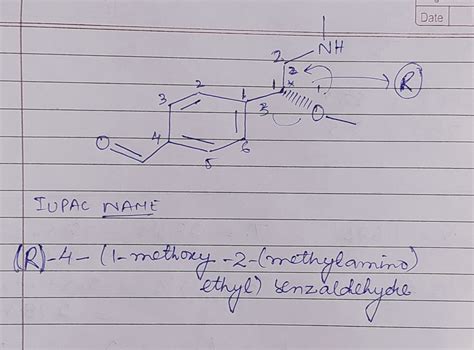 Date
NH
2
2
R
1
1
*
1
2
3
3
O
4
6
5
O
IUPAC NAME
(R)-4-(1-methoxy-2-(methylamino)
ethyl) benzaldehyde